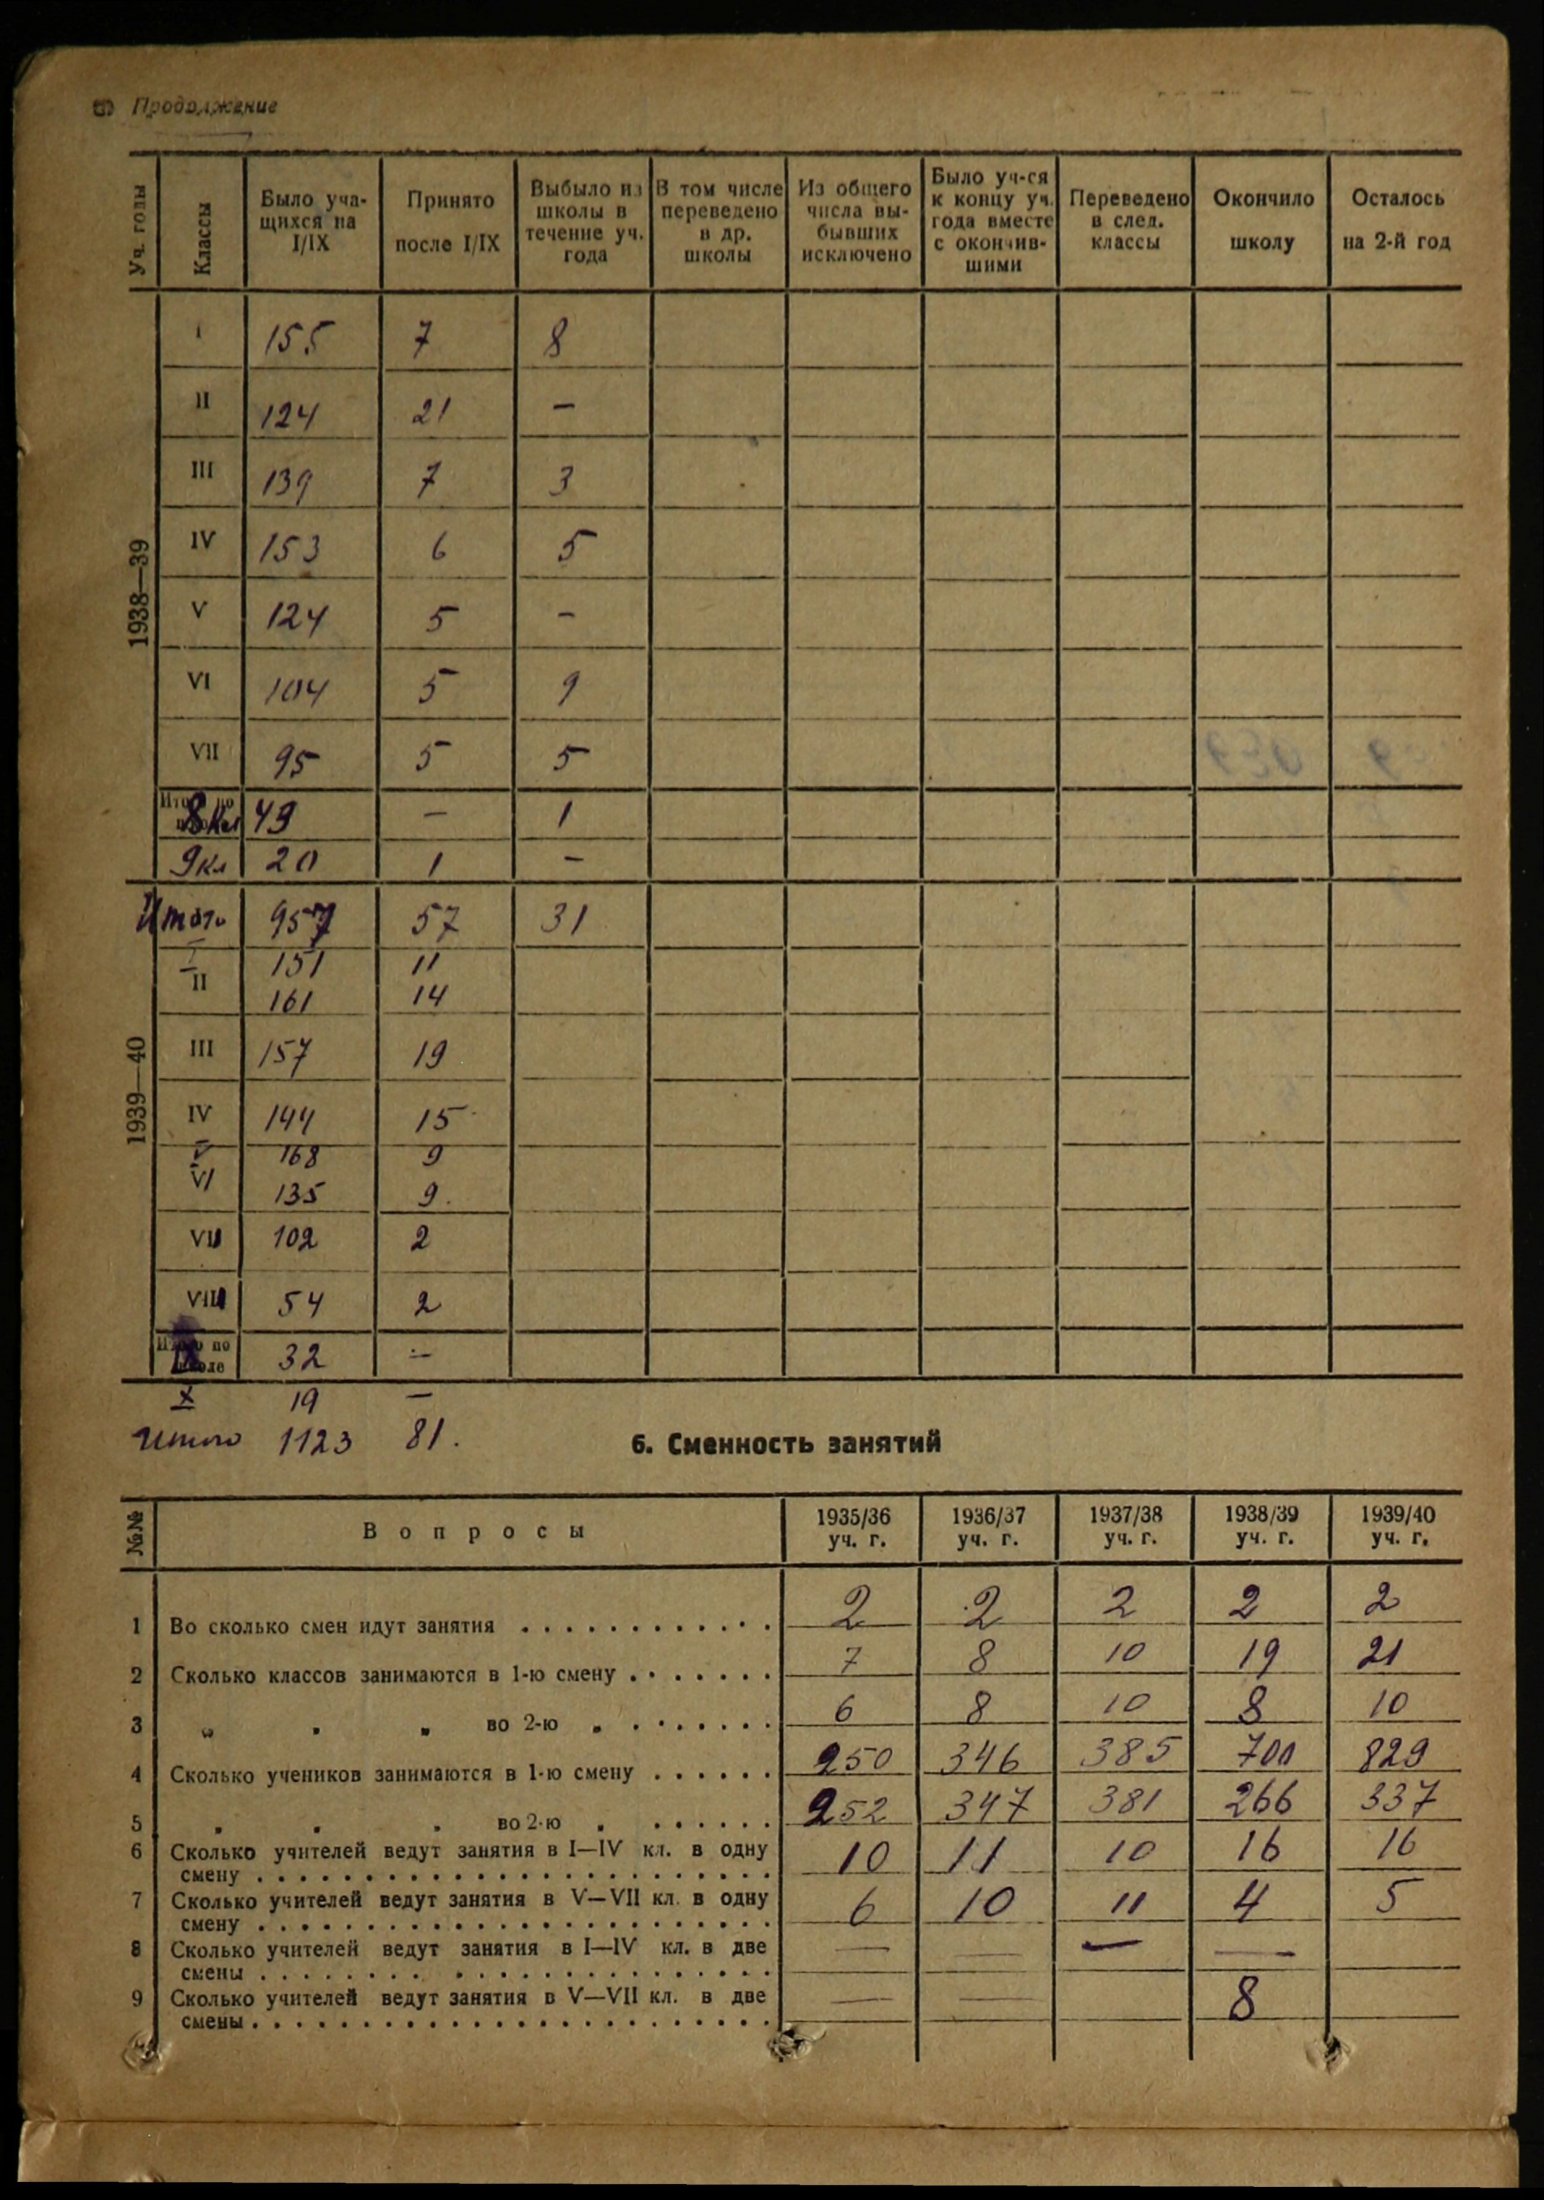 Продолжение
Уч. годы | Классы | Было учащихся на I/IX | Принято после I/IX | Выбыло из школы в течение уч. года | В том числе переведено в др. школы | Из общего числа выбывших исключено | Было уч-ся к концу уч. года вместе с окончившими | Переведено в след. классы | Окончило школу | Осталось на 2-й год
1938—39
I 155 7 8
II 124 21 —
III 139 7 3
IV 153 6 5
V 124 5 —
VI 104 5 9
VII 95 5 5
8 кл 49 — 1
9 кл 20 1 —
Итого 957 57 31
1939—40
I 151 11
II 161 14
III 157 19
IV 144 15
V 168 9
VI 135 9
VII 102 2
VIII 54 2
Итого по школе
IX 32 —
X 19 —
Итого 1123 81.
6. Сменность занятий
№№ | Вопросы | 1935/36 уч. г. | 1936/37 уч. г. | 1937/38 уч. г. | 1938/39 уч. г. | 1939/40 уч. г.
1 Во сколько смен идут занятия . . . . . . . . . . . . 2 2 2 2 2
2 Сколько классов занимаются в 1-ю смену . . . . . . . 7 8 10 19 21
3 „ „ „ во 2-ю „ . . . . . . . 6 8 10 8 10
4 Сколько учеников занимаются в 1-ю смену . . . . . . 250 346 385 700 829
5 „ „ „ во 2-ю „ . . . . . . 252 347 381 266 337
6 Сколько учителей ведут занятия в I—IV кл. в одну
смену . . . . . . . . . . . . . . . . . . . . 10 11 10 16 16
7 Сколько учителей ведут занятия в V—VII кл. в одну
смену . . . . . . . . . . . . . . . . . . . . 6 10 11 4 5
8 Сколько учителей ведут занятия в I—IV кл. в две
смены . . . . . . . . . . . . . . . . . . . . — — — —
9 Сколько учителей ведут занятия в V—VII кл. в две
смены . . . . . . . . . . . . . . . . . . . . — — 8